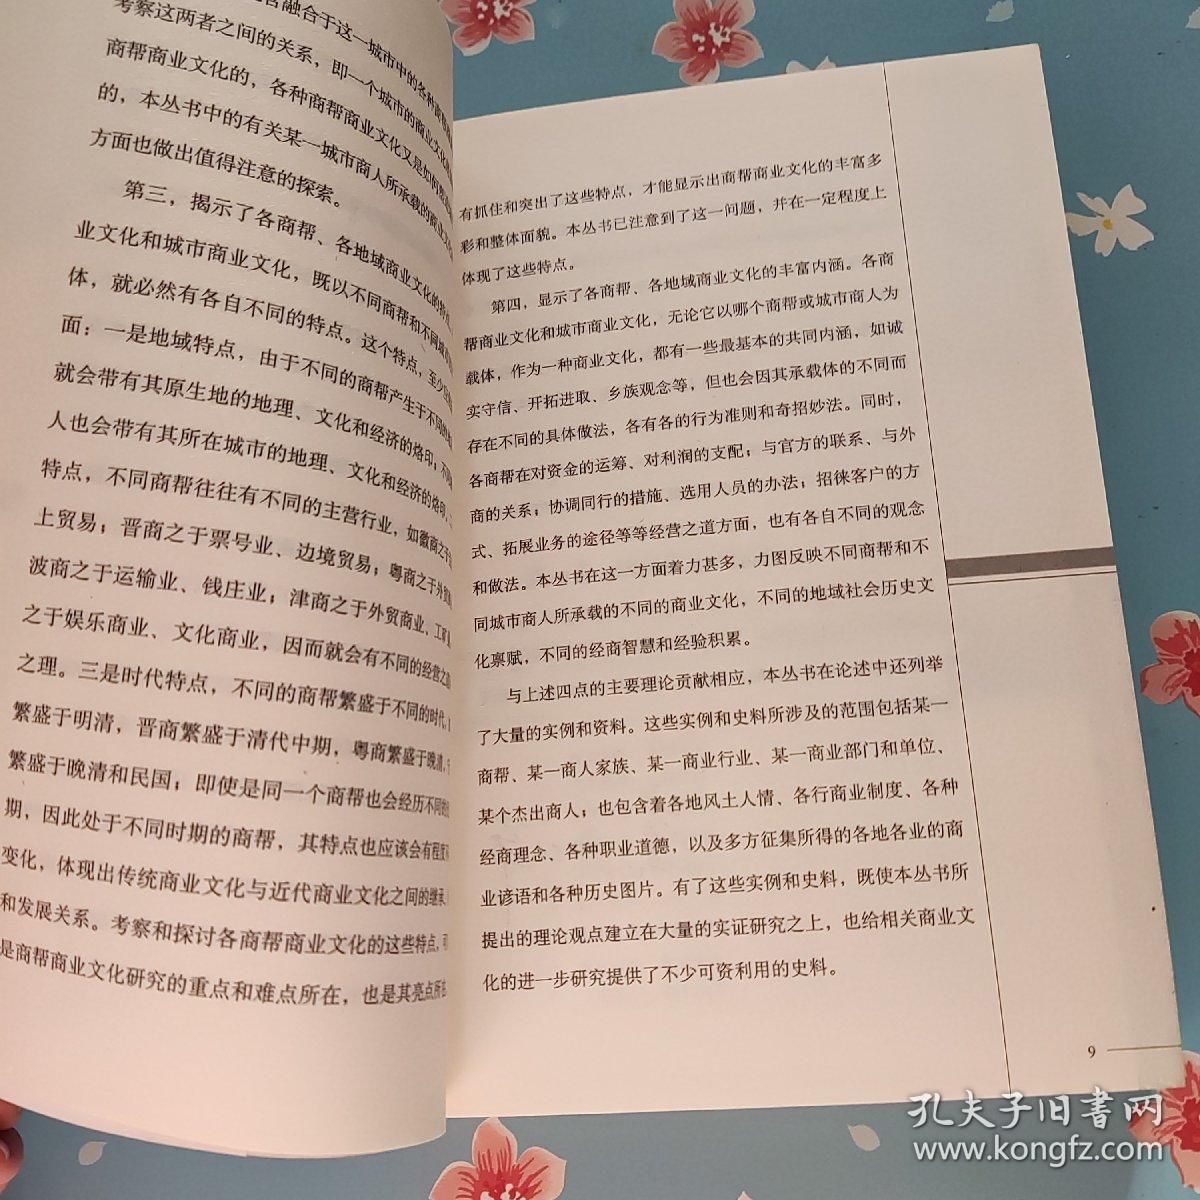 融合于这一城市中的各种商
考察这两者之间的关系，即一个城市的商业文化
商帮商业文化的，各种商帮商业文化又是如何
的，本丛书中的有关某一城市商人所承载的商业文
方面也做出值得注意的探索。
第三，揭示了各商帮、各地域商业文化的特点。
业文化和城市商业文化，既以不同商帮和不同城
体，就必然有各自不同的特点。这个特点，至少
面：一是地域特点，由于不同的商帮产生于不同的
就会带有其原生地的地理、文化和经济的烙印；不同
人也会带有其所在城市的地理、文化和经济的烙印。
特点，不同商帮往往有不同的主营行业，如徽商之于
上贸易；晋商之于票号业、边境贸易；粤商之于外贸
波商之于运输业、钱庄业；津商之于外贸商业、工矿
之于娱乐商业、文化商业，因而就会有不同的经营之
之理。三是时代特点，不同的商帮繁盛于不同的时代，
繁盛于明清，晋商繁盛于清代中期，粤商繁盛于晚清，
繁盛于晚清和民国；即使是同一个商帮也会经历不同的
期，因此处于不同时期的商帮，其特点也应该会有程度
变化，体现出传统商业文化与近代商业文化之间的继承、
和发展关系。考察和探讨各商帮商业文化的这些特点，
是商帮商业文化研究的重点和难点所在，也是其亮点所在
有抓住和突出了这些特点，才能显示出商帮商业文化的丰富多
彩和整体面貌。本丛书已注意到了这一问题，并在一定程度上
体现了这些特点。
第四，显示了各商帮、各地域商业文化的丰富内涵。各商
帮商业文化和城市商业文化，无论它以哪个商帮或城市商人为
载体，作为一种商业文化，都有一些最基本的共同内涵，如诚
实守信、开拓进取、乡族观念等，但也会因其承载体的不同而
存在不同的具体做法，各有各的行为准则和奇招妙法。同时，
各商帮在对资金的运筹、对利润的支配；与官方的联系、与外
商的关系；协调同行的措施、选用人员的办法；招徕客户的方
式、拓展业务的途径等等经营之道方面，也有各自不同的观念
和做法。本丛书在这一方面着力甚多，力图反映不同商帮和不
同城市商人所承载的不同的商业文化，不同的地域社会历史文
化禀赋，不同的经商智慧和经验积累。
与上述四点的主要理论贡献相应，本丛书在论述中还列举
了大量的实例和资料。这些实例和史料所涉及的范围包括某一
商帮、某一商人家族、某一商业行业、某一商业部门和单位、
某个杰出商人；也包含着各地风土人情、各行商业制度、各种
经商理念、各种职业道德，以及多方征集所得的各地各业的商
业谚语和各种历史图片。有了这些实例和史料，既使本丛书所
提出的理论观点建立在大量的实证研究之上，也给相关商业文
化的进一步研究提供了不少可资利用的史料。
9
孔夫子旧书网
www.kongfz.com